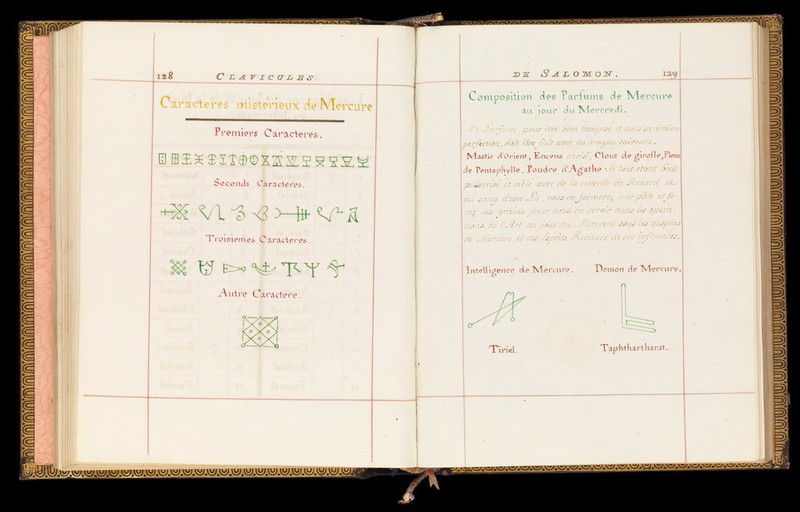 128
CLAVICULES
Caracteres misterieux de Mercure
Premiers Caracteres.
Seconds Caracteres.
Troisiemes Caracteres.
Autre Caractere.
DE SALOMON.
129
Composition des Parfums de Mercure
au jour du Mercredi.
Ce Parfum, pour être bien composé et dans sa derniere
perfection, doit être fait avec les drogues suivantes.
Mastic d'Orient, Encens choisi, Clous de girofle, Fleurs
de Pentaphylle, Poudre d'Agathe: le tout etant bien
pulverisé et mêlé avec de la cervelle de Renard et
du sang d'une Pie, vous en formerez une pâte et fe-
rez des grains pour vous en servir dans les opera-
tions de l'Art au jour du Mercredi sous les auspices
de Mercure et des Esprits Recteurs de ses influences.
Intelligence de Mercure.
Demon de Mercure.
Tiriel.
Taphthartharat.